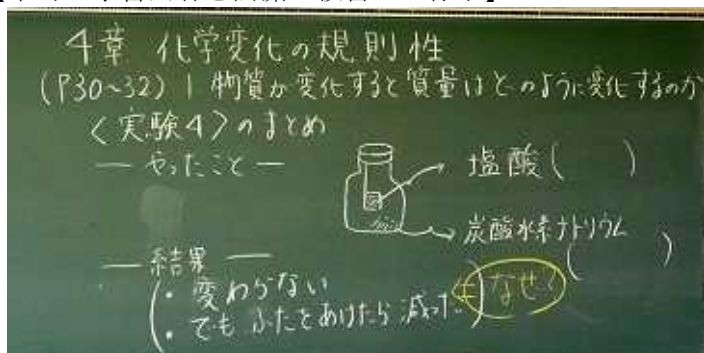 4章 化学変化の規則性
(P30~32) 1 物質が変化すると質量はどのように変化するのか
〈実験4〉のまとめ
— やったこと —
塩酸(　　)
炭酸水素ナトリウム
(　　)
— 結果 —
・変わらない
・でもふたをあけたら減った。
なぜ